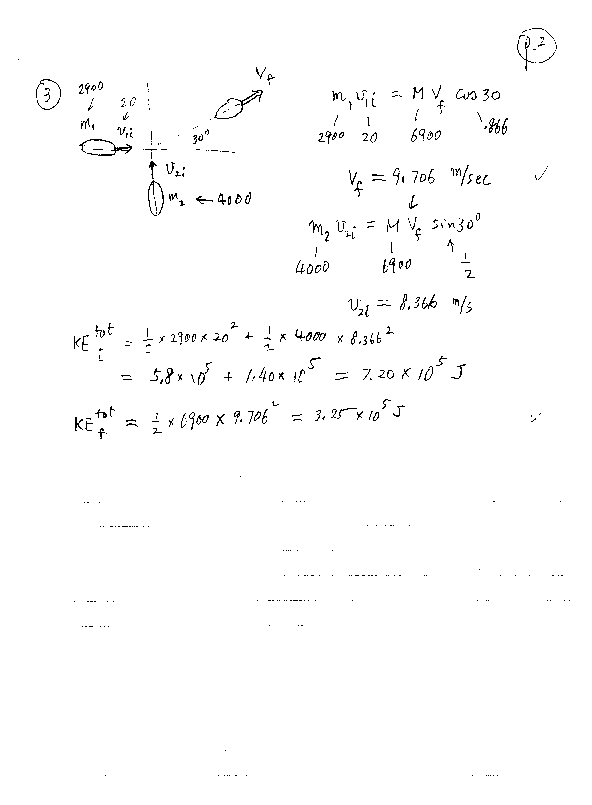 p.2
③
2900 20 V_f
m₁ v₁ᵢ 30⁰
v₂ᵢ
m₂ ← 4000
m₁ v₁ᵢ = M V_f cos 30
2900 20 6900 .866
V_f = 9.706 m/sec ✓
m₂ v₂ᵢ = M V_f sin 30⁰
4000 6900 1/2
v₂ᵢ = 8.366 m/s
KEᵢᵗᵒᵗ = 1/2 × 2900 × 20² + 1/2 × 4000 × 8.366²
= 5.8 × 10⁵ + 1.40 × 10⁵ = 7.20 × 10⁵ J
KE_fᵗᵒᵗ = 1/2 × 6900 × 9.706² = 3.25 × 10⁵ J ✓